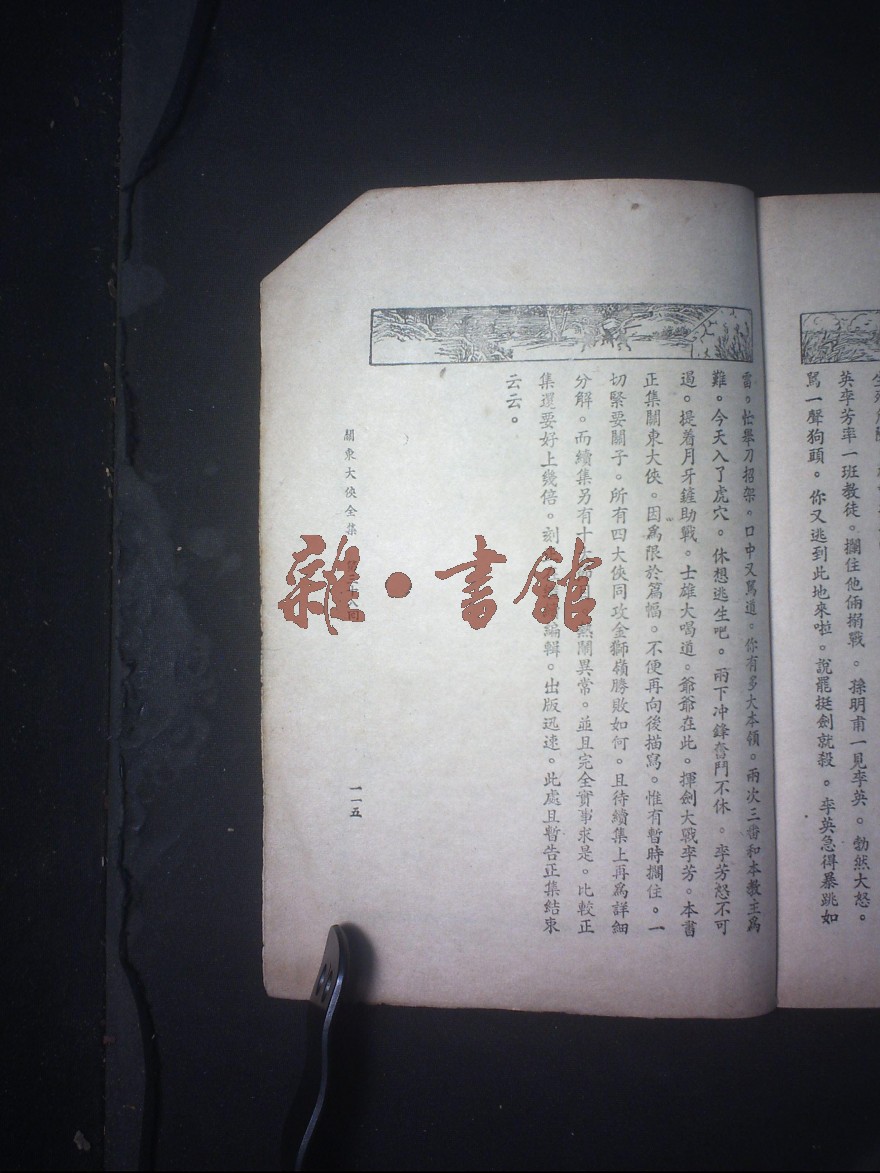 英李芳率一班教徒。攔住他倆搦戰。孫明甫一見李英。勃然大怒。
罵一聲狗頭。你又逃到此地來啦。說罷挺劍就殺。李英急得暴跳如
雷。忙舉刀招架。口中又罵道。你有多大本領。兩次三番和本教主爲
難。今天入了虎穴。休想逃生吧。兩下冲鋒奮鬥不休。李芳怒不可
遏。提着月牙鏟助戰。士雄大喝道。爺爺在此。揮劍大戰李芳。本書
正集關東大俠。因爲限於篇幅。不便再向後描寫。惟有暫時擱住。一
切緊要關子。所有四大俠同攻金獅嶺勝敗如何。且待續集上再爲詳細
分解。而續集另有十 熱鬧異常。並且完全實事求是。比較正
集還要好上幾倍。刻 編輯。出版迅速。此處且暫告正集結束
云云。
關東大俠全集
一一五
雜·書館